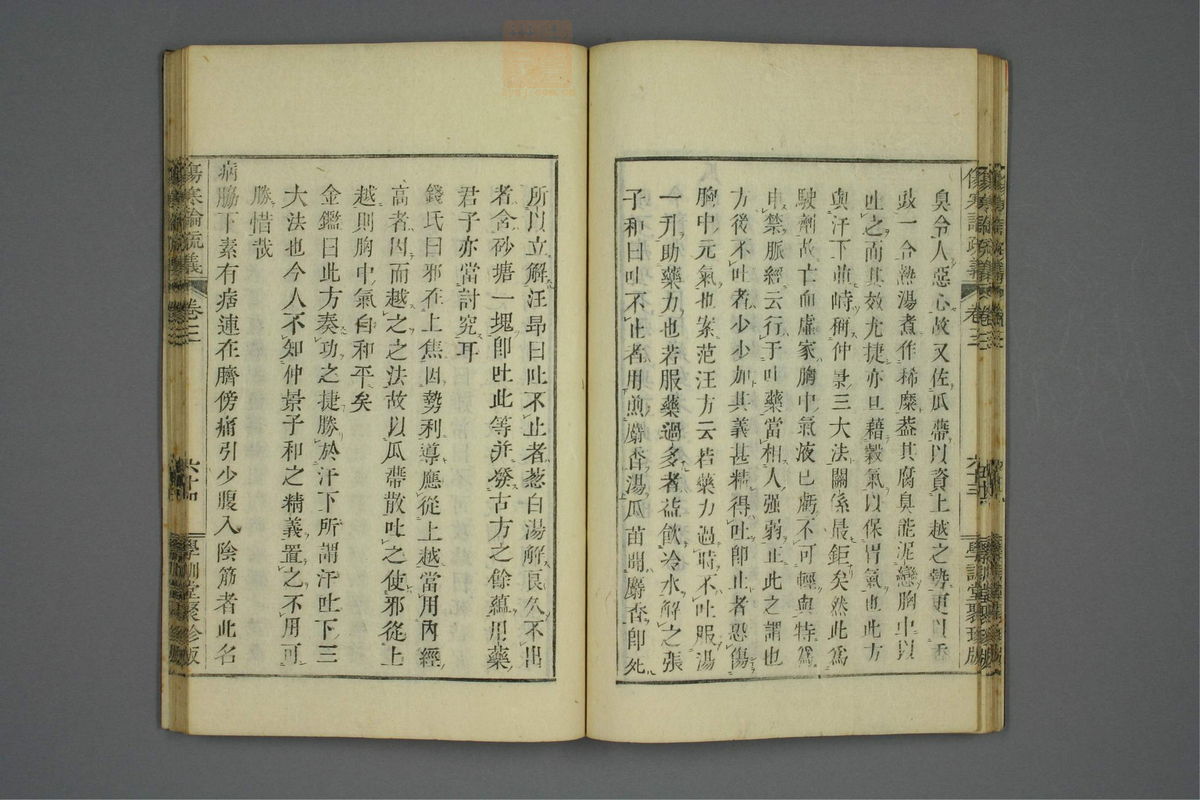 臭令人惡心故又佐瓜蔕以資上越之勢更以香
豉一合熱湯煮作稀糜葢其腐臭能泥戀胸中以
吐之而其效尤捷亦且藉穀氣以保胃氣也此方
與汗下並峙稱仲景三大法關係最鉅矣然此爲
駛劑故亡血虛家胸中氣液已虧不可輕與特爲
申禁脈經云行于吐藥當相人强弱正此之謂也
方後不吐者少少加其義甚精得吐卽止者恐傷
胸中元氣也案范汪方云若藥力過時不吐服湯
一升助藥力也若服藥過多者益飮冷水解之張
子和曰吐不止者用煎麝香湯瓜苗聞麝香卽死
所以立解汪昂曰吐不止者葱白湯解良久不出
者含砂塘一塊卽吐此等幷發古方之餘蘊用藥
君子亦當討究耳
錢氏曰邪在上焦因勢利導應從上越當用內經
高者因而越之之法故以瓜蔕散吐之使邪從上
越則胸中氣自和平矣
金鑑曰此方奏功之捷勝於汗下所謂汗吐下三
大法也今人不知仲景子和之精義置之不用可
勝惜哉
病脇下素有痞連在臍傍痛引少腹入陰筋者此名
傷寒論疏義
卷三
六十三
學訓堂聚珍版
傷寒論疏義
卷三
六十四
學訓堂聚珍版